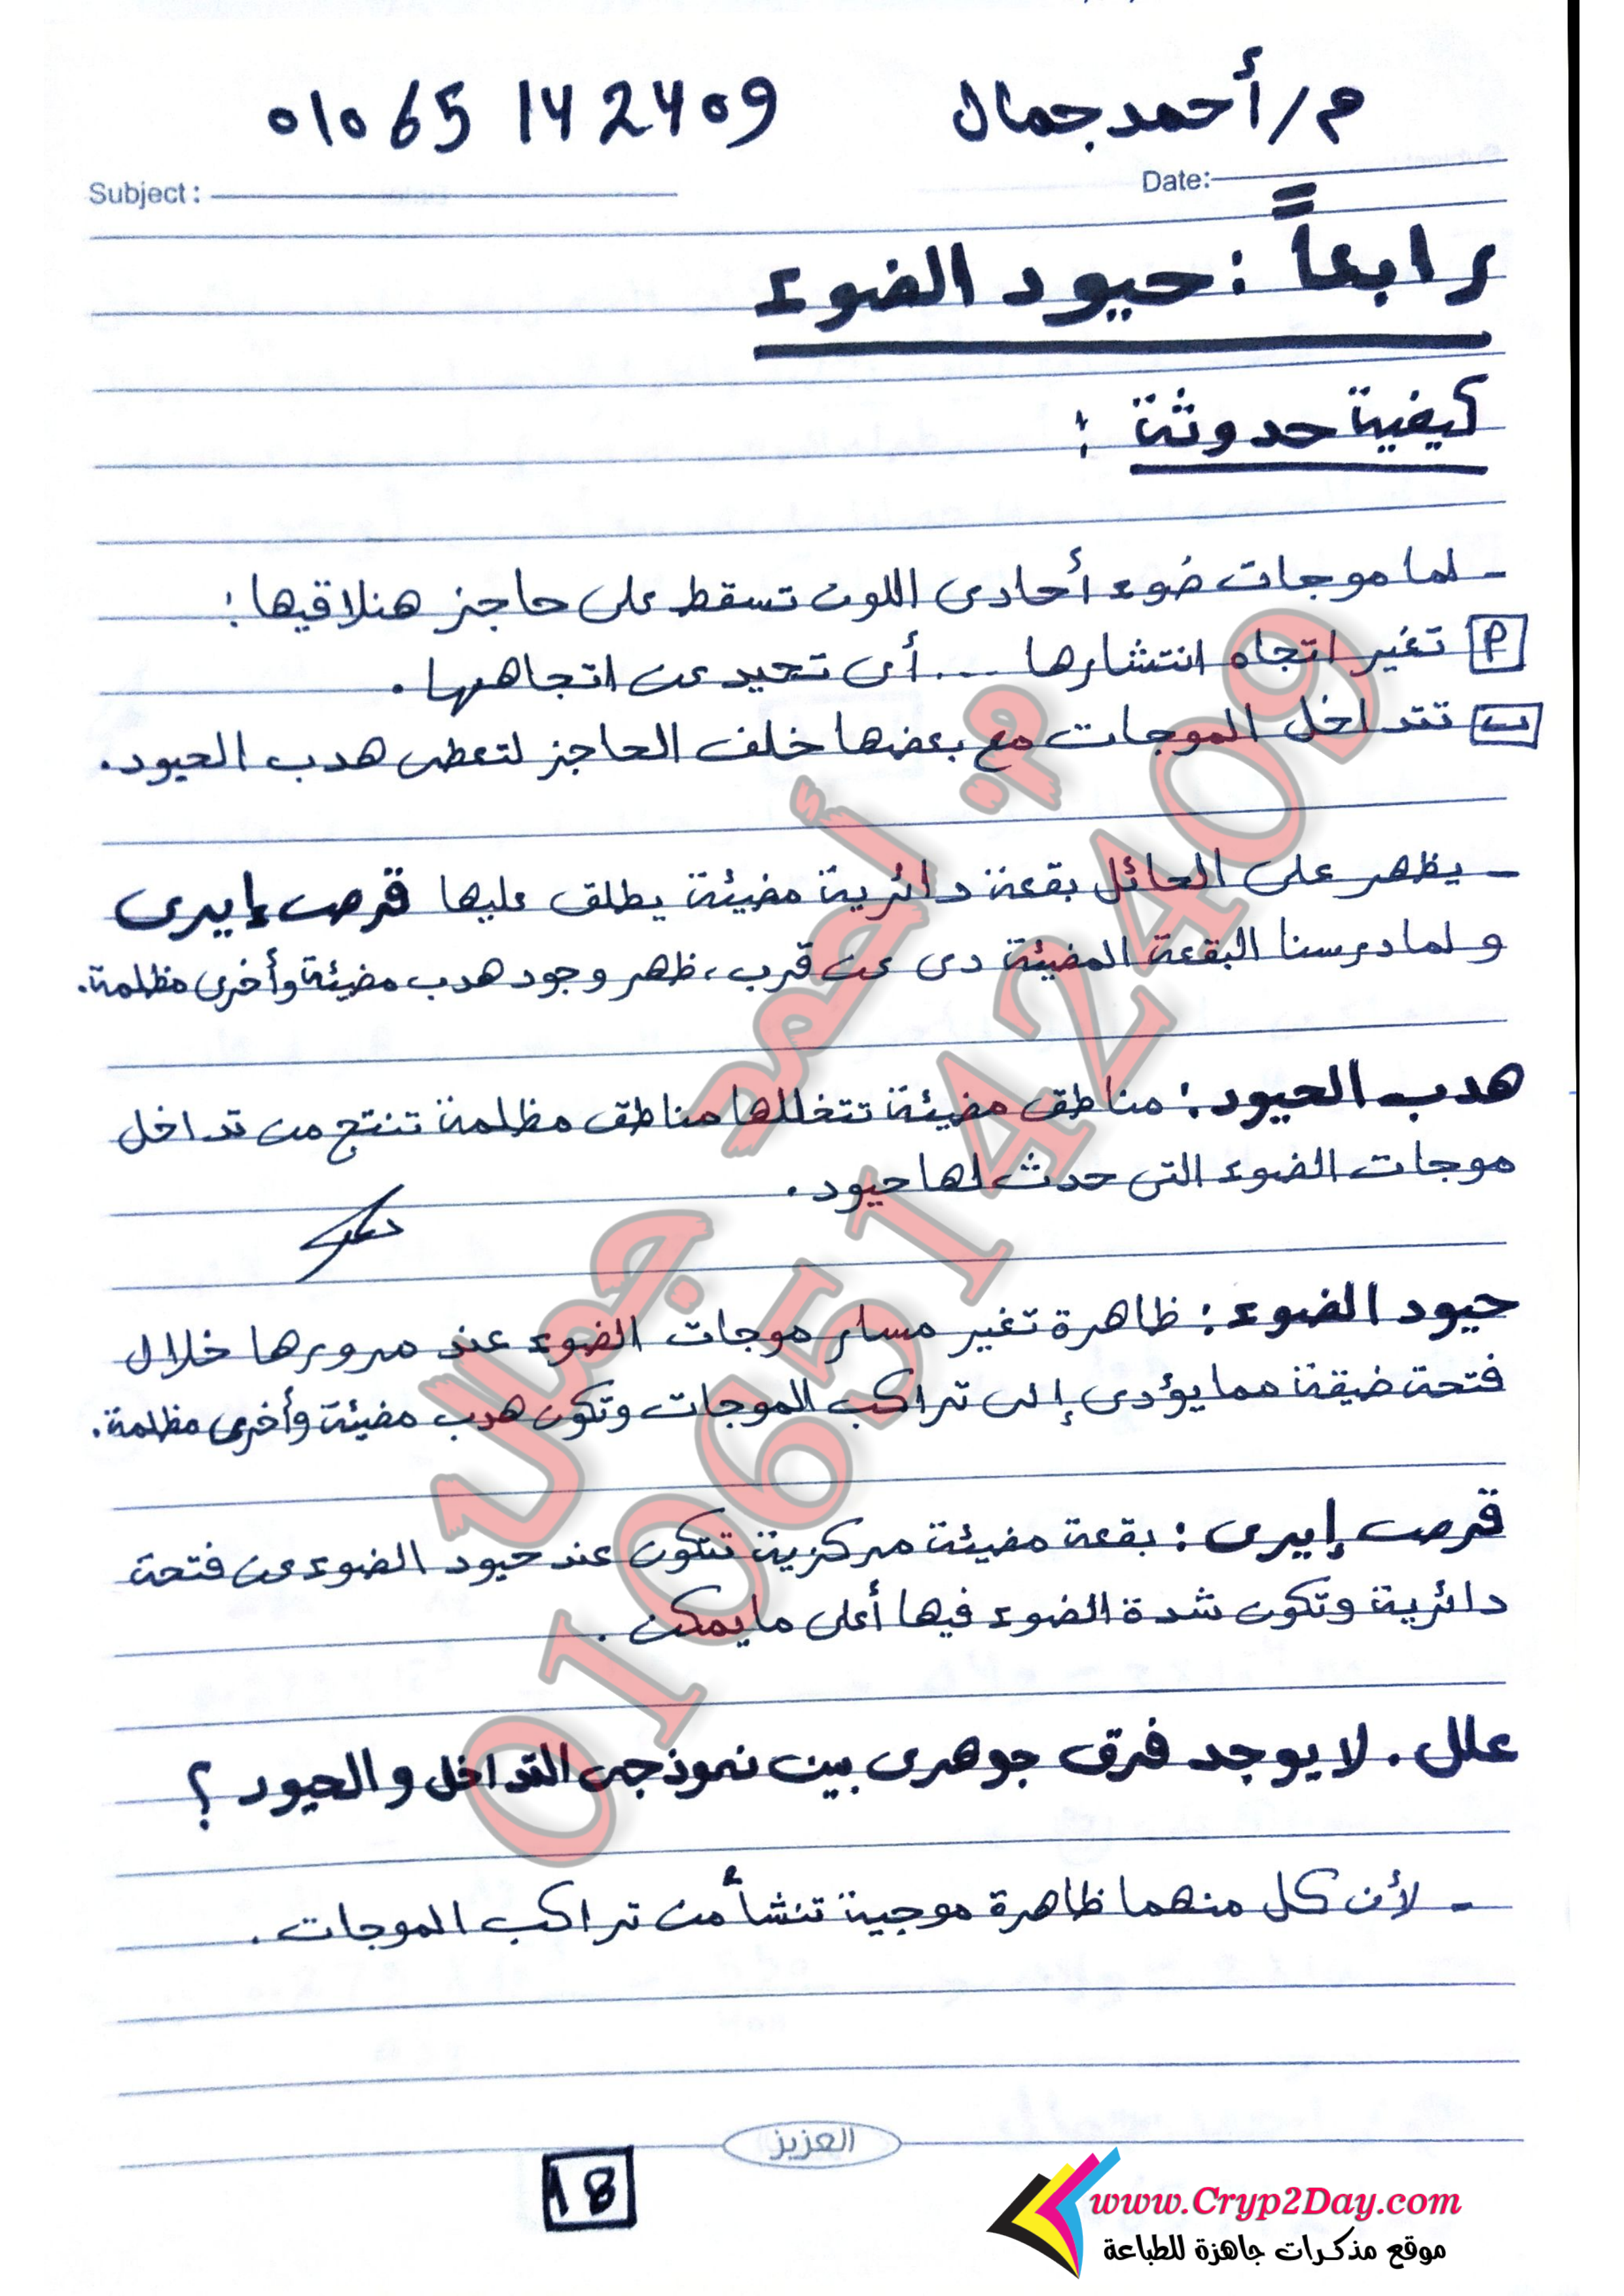 م/أحمد جمال 01065142409
Date:
Subject :
رابعاً : حيود الضوء
كيفية حدوثة :
- لما موجات ضوء أحادى اللون تسقط على حاجز هنلاقيها :
أ تغير اتجاه انتشارها ... أى تحيد عن اتجاهها .
ب تتداخل الموجات مع بعضها خلف الحاجز لتعطى هدب الحيود .
- يظهر على الحائل بقعة دائرية مضيئة يطلق عليها قرص إيرى
ولما درسنا البقعة المضيئة دى عن قرب ، ظهر وجود هدب مضيئة وأخرى مظلمة .
هدب الحيود : مناطق مضيئة تتخللها مناطق مظلمة تنتج من تداخل
موجات الضوء التى حدث لها حيود .
حيود الضوء : ظاهرة تغير مسار موجات الضوء عند مرورها خلال
فتحة ضيقة مما يؤدى إلى تراكب الموجات وتكون هدب مضيئة وأخرى مظلمة .
قرص إيرى : بقعة مضيئة مركزية تتكون عند حيود الضوء عن فتحة
دائرية وتكون شدة الضوء فيها أعلى ما يمكن .
علل . لا يوجد فرق جوهرى بين نموذجى التداخل والحيود ؟
- لأن كل منهما ظاهرة موجية تنشأ من تراكب الموجات .
م. أحمد جمال
01065142409
العزيز
18
www.Cryp2Day.com
موقع مذكرات جاهزة للطباعة